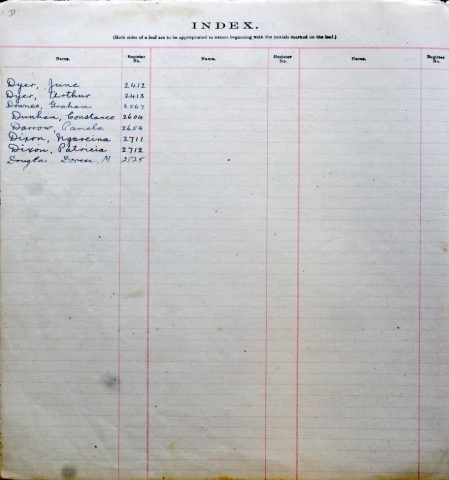 D
INDEX.
(Both sides of a leaf are to be appropriated to names beginning with the initials marked on the leaf.)
Name. Register No. Name. Register No. Name. Register No.
Dyer, June 2412
Dyer, Arthur 2413
Downes, Graham 2567
Dunhan, Constance 2604
Darrow, Pamela 2654
Dixon, Ngareina 2711
Dixon, Patricia 2712
Douglas Doreen M